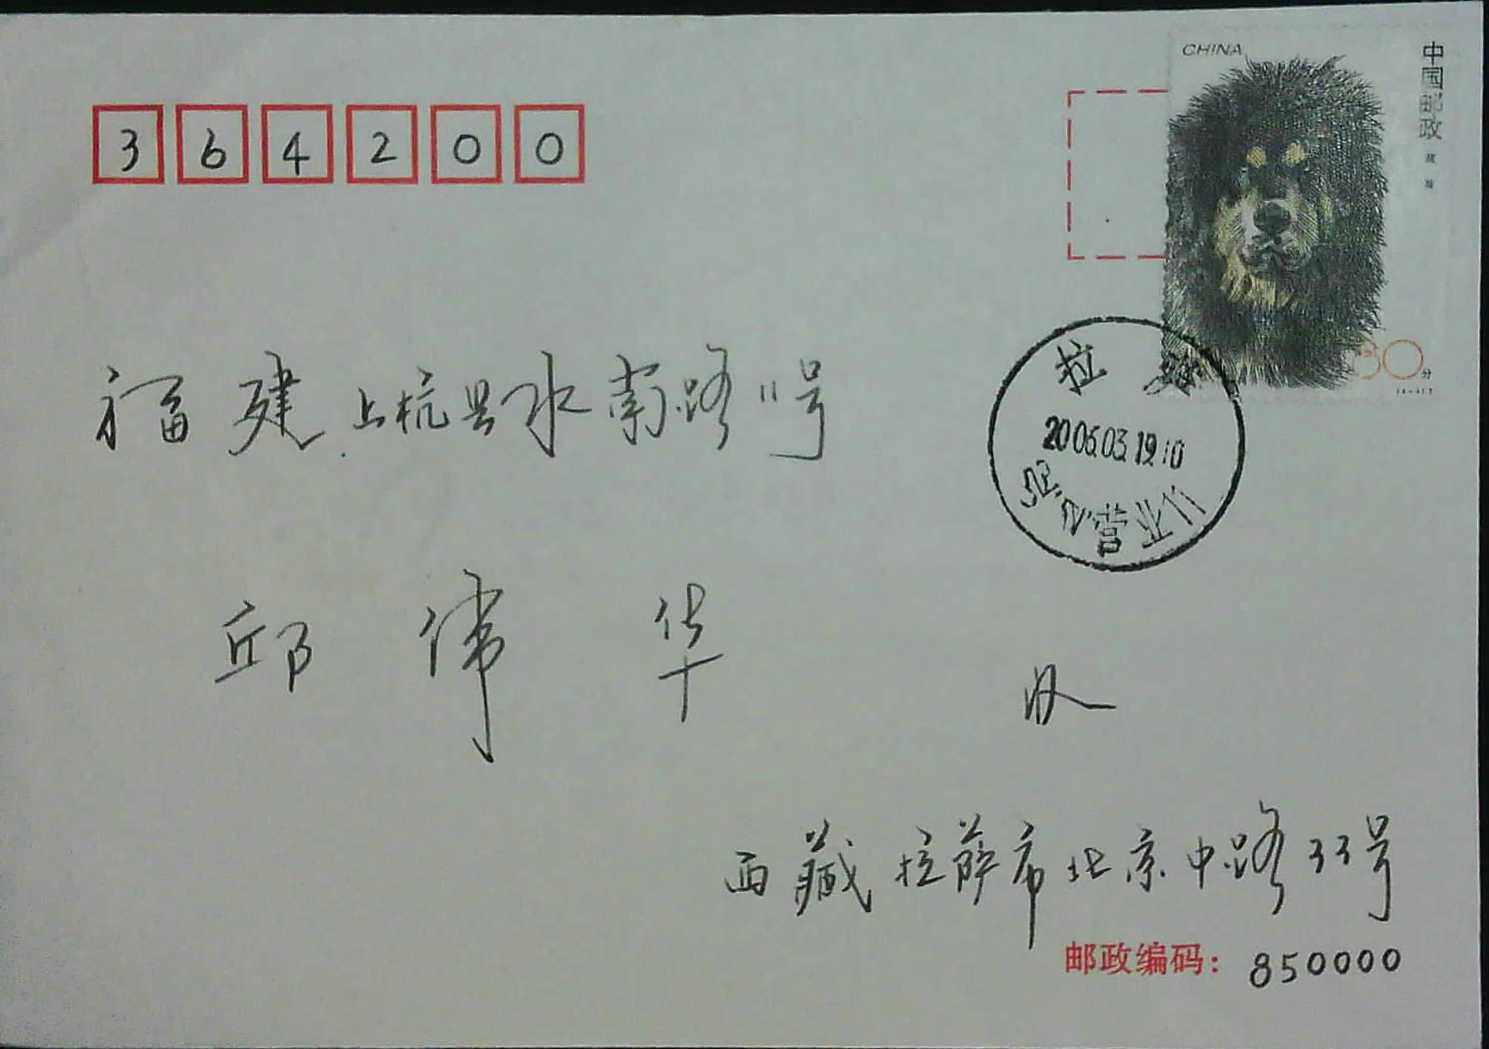 CHINA
中国邮政
藏獒
30分
364200
拉萨
2006.03.19.10
营业
福建上杭县水南路11号
邱伟华 收
西藏拉萨市北京中路33号
邮政编码：850000